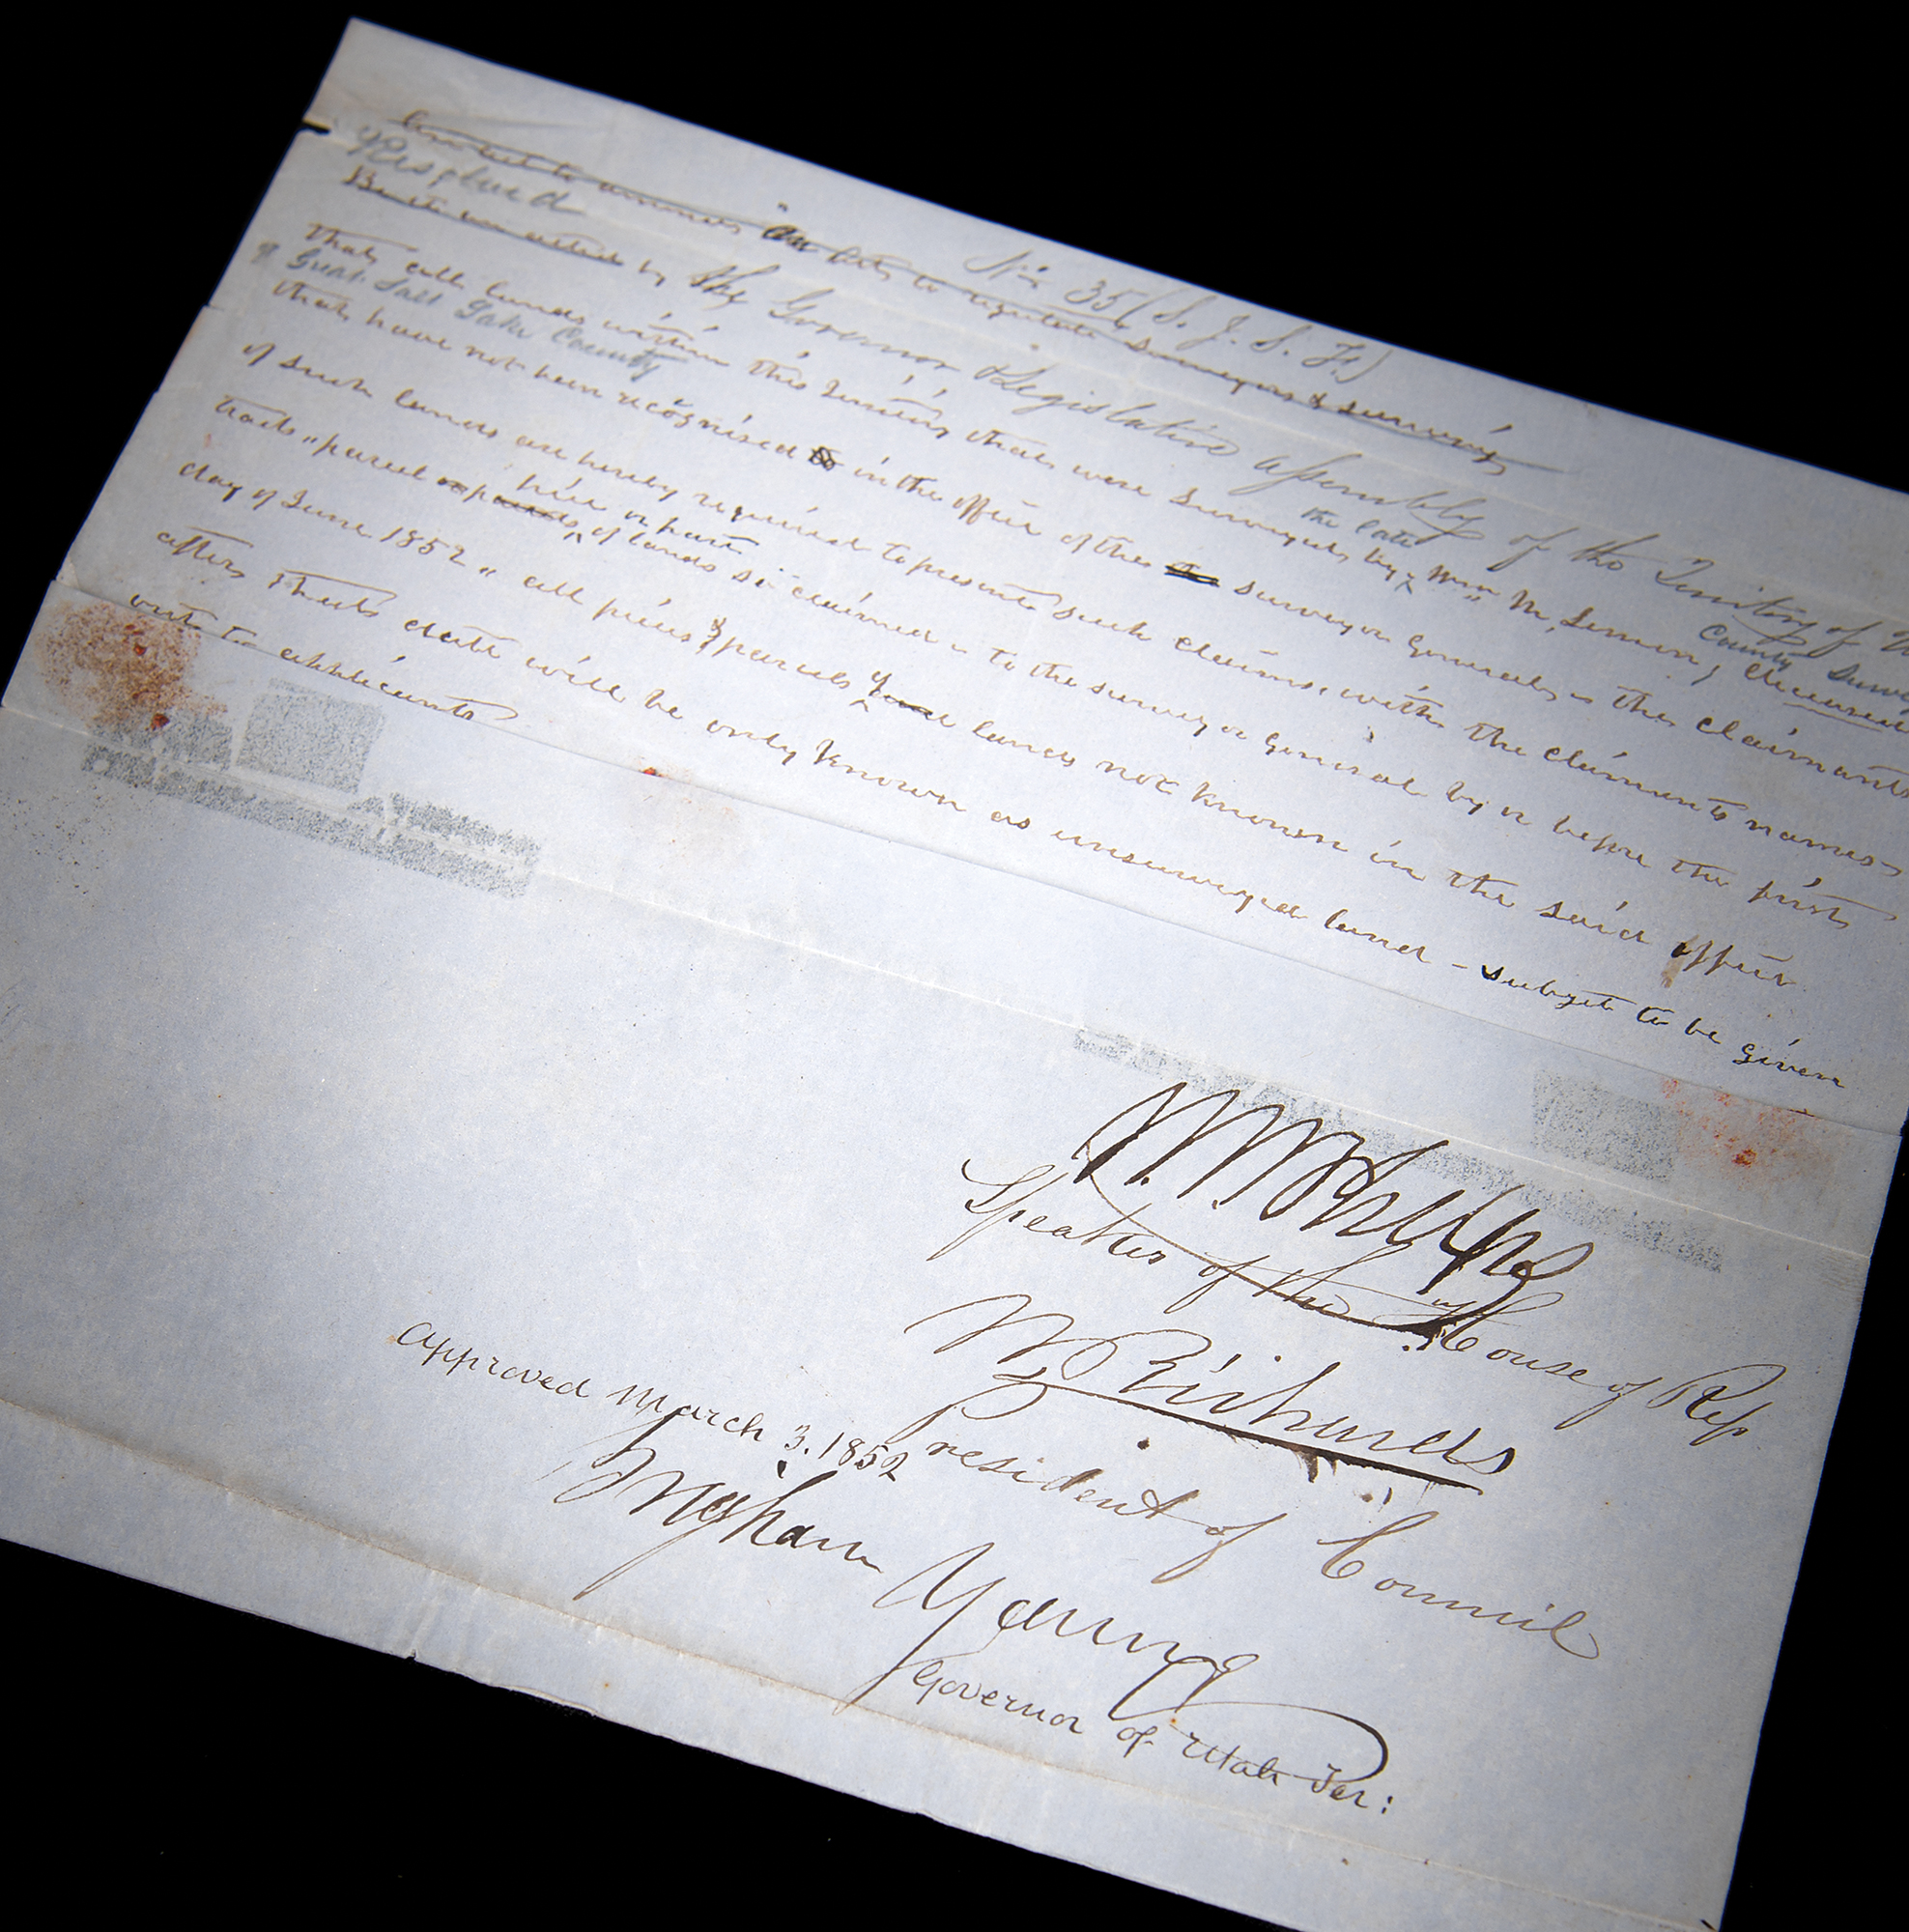 No 35 (S. J. S. H.)
an act to regulate Surveyors & Surveying
Resolved
by the Governor & Legislative Assembly of the Territory of
that all lands within this Territory that were Surveyed by the late Wm M, Lemon, deceased County Surveyor
of Great Salt Lake County
that have not been recognised in the office of the surveyor General, the claimants
of such lands are hereby required to present such claims, with the claimants names
tracts, parcel or parcels piece or part of lands si claimed - to the surveyor General by or before the first
day of June 1852 " all pieces & parcels of land lands not known in the said office
after that date will be only known as unsurveyed land - subject to be given
out to applicants
W. W. Phelps
Speaker of the House of Rep
W Richards
President of Council
approved March 3. 1852
Brigham Young
Governor of Utah Ter: